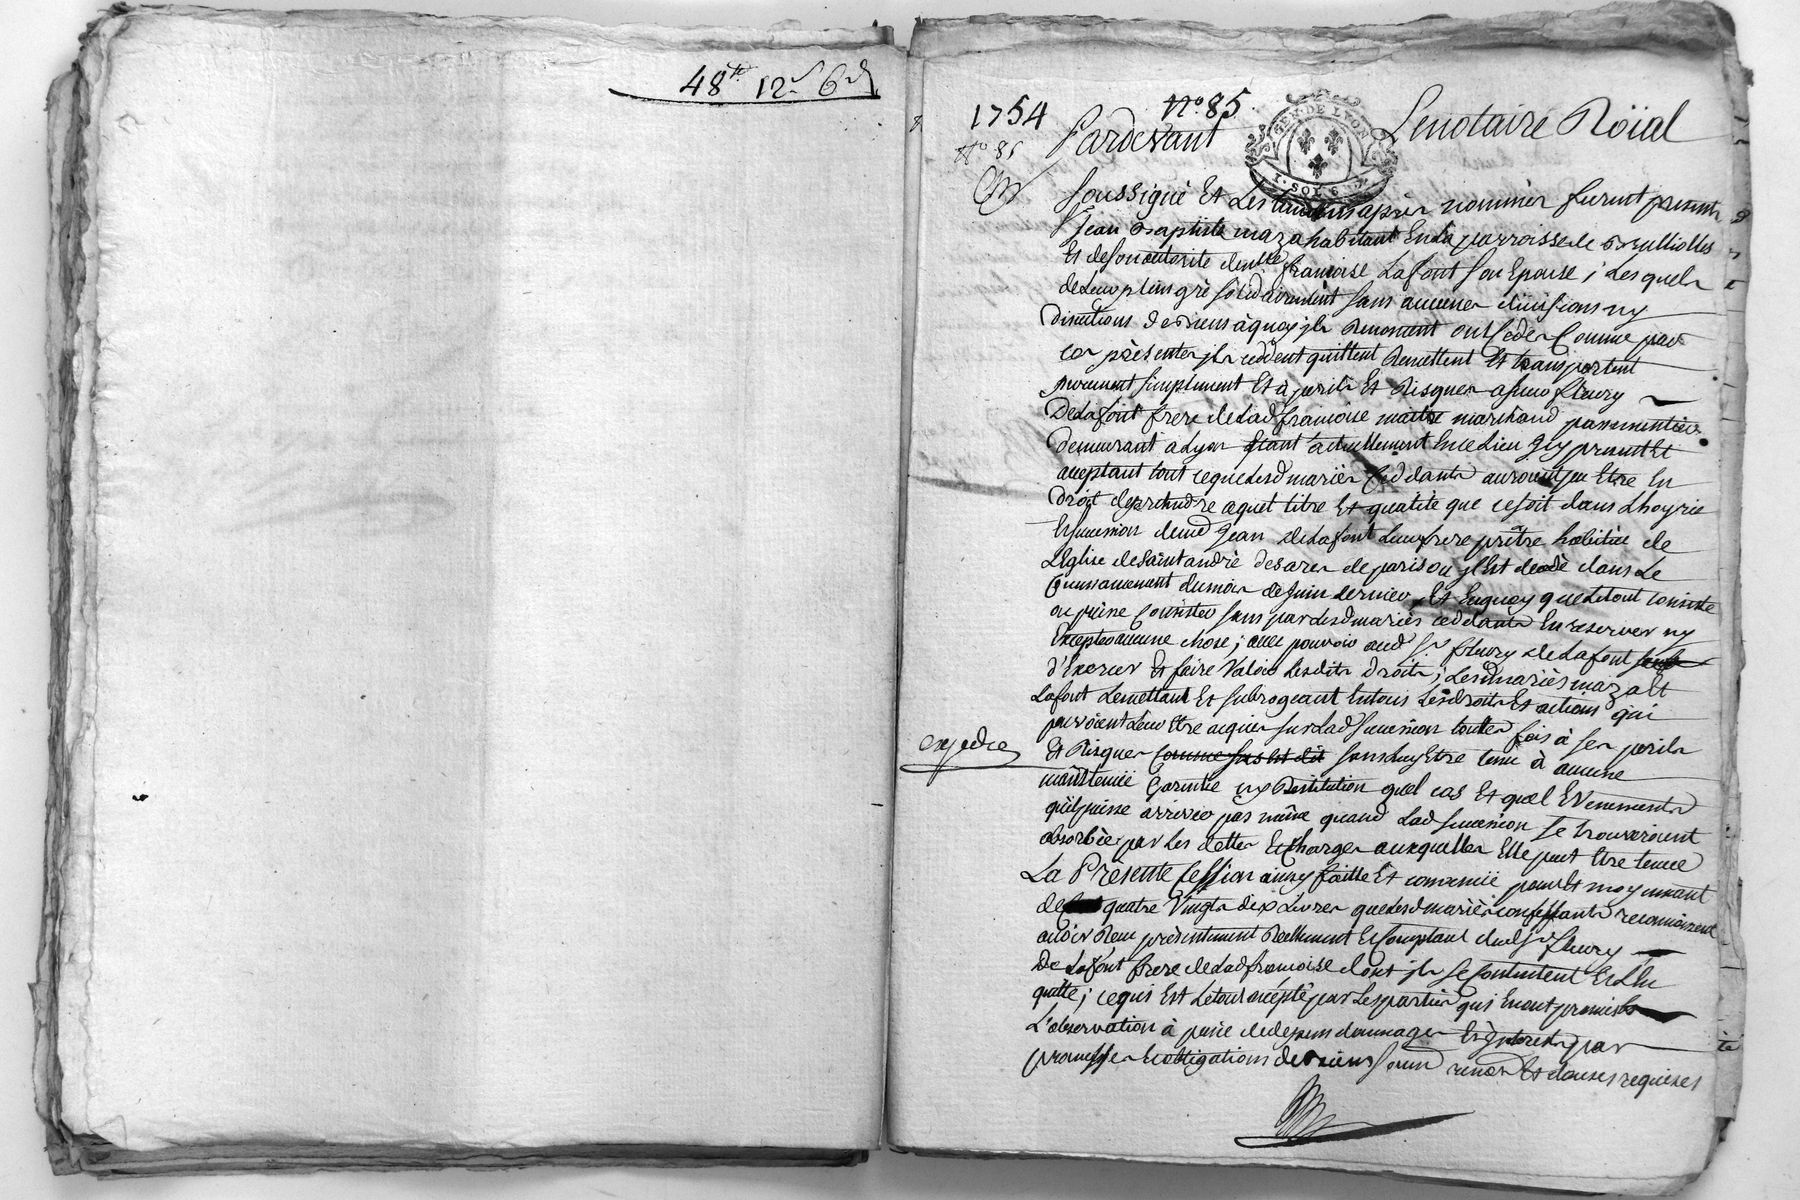 48tt 12s 6d
1754 No. 85
No 85
GEN DE LYON
1. SOL 8.
Pardevant Lenotaire Röial
soussigné Et Les temoins après nommés furent presents
Sr Jean Baptiste maza habitant En la parroisse de
Et de son autorite demlle francoise Lafont son Epouse ; Lesquels
de Leur plein gré solidairement sans aucunes divisions ny
discutions de Biens à quoy jls Renoncent ont Cédés Comme par
ces présentes jls cèddent quittent Remettent Et transportent
purement simplement Et à perils Et Risques a sieur fleury
Delafont frere de Lad francoise maitre marchand passementier
demeurant a Lyon Etant actuellement En ce Lieu jcy present Et
acceptant tout ce que Lesd mariés Ceddants auroient pu Etre En
Droit de pretendre a quel titre Et qualité que ce soit dans Lhoyrie
Et succession de md Jean de Lafont Leur frere prêtre habitué de
L'Eglise de Saint andré des arcs de paris ou jl Est decedé dans Le
Commancement du mois de juin dernier, Et En quoy que Le tout consiste
ou puisse Consister sans par Lesd mariés ceddants En reserver ny
Excepter aucune chose ; avec pouvoir aud Sr fleury de Lafont
d'Exercer Et faire valoir Lesdits Droits ; Lesd mariés maza Et
Lafont Le mettant Et subrogeant En tous Les droits Et actions qui
pouvoient Leur Etre acquis sur Lad succession toutes fois à ses perils
Et Risques Comme sus est dit sans Luy Etre tenu à aucune
expédié
maintenüe Garentie ny Restitution quel cas Et quel Evenements
qu'il puisse arriver pas même quand Lad succession se trouveroient
absorbée par Les dettes Et Charges auxquelles Elle peut Etre tenue
La Présente Cession ainsy faitte Et convenüe pour Et moyennant
de quatre Vingts dix Livres que Lesd mariés confessants reconnoissent
avoir Reçu présentement Réellement Et Comptant dud Sr fleury
De Lafont frere de Lad francoise dont jls se Contentent Et L'en
quitte ; ce qui Est Le tout accépté par Les parties qui En ont promis
L'observation à peine de depens dommages Et Jnterets par
promesses Et obligations de Biens Soum renon Et clauses requises